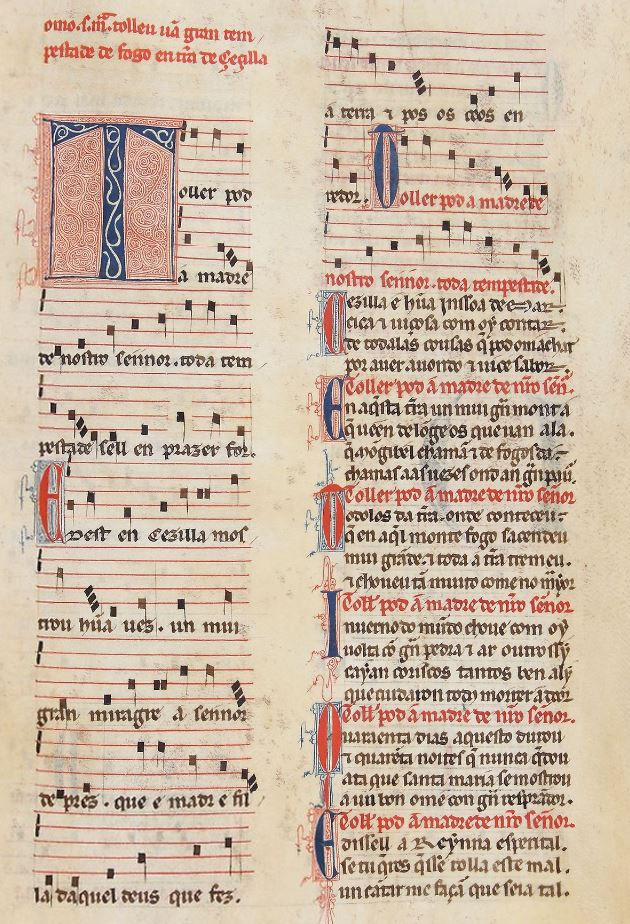 omo. s. m̃. tolleu ũa gran tem
pestade de fogo en t̃ra de Çeçilla
Toller pod
á madre
de nostro sennor. toda tem
pestade sell en prazer for.
E dest en Cezilla mos
trou hũa uez. un mui
gran miragre a sennor
de prez. que e madr e fil
la daquel deus que fez.
a terra ⁊ pos os çeos en
redor. Toller pod a madre de
nostro sennor. toda tempestade.
Cezilla e hũa inssoa de mar
çerca ⁊ uiçosa com oý contar.
de todalas cousas q̃ pod om achar
por auer auondo ⁊ uiçe sabor.
Toller pod a madre de nr̃o señ.
En aq̃sta t̃ra un mui gñ mont a
q̃ ueen de loge os que uan ala.
q̃ mõgibel chamã ⁊ de fogos da
chamas aas uezes ond an gñ pau.
Toller pod á madre de nr̃o señor
Todolos da t̃ra. onde conteceu
q̃ en aq̃l monte fogo s açendeu
mui grãde ⁊ toda a t̃ra tremeu.
⁊ choueu tã muito come no mỹor
Toll̃ pod á madre de nr̃o señor
Inuerno do mũdo choue com oý
uolta cõ gñ pedra ⁊ ar outro ssý
caýan coriscos tantos ben alý
que cuidaron todos morrer a door
Toll̃ pod a madre de nr̃o señor.
Quaraenta dias aquesto durou
⁊ quarẽta noites q̃ nunca q̃dou
ata que santa maria se mostrou
a un bon ome con gñ resprãdor.
Toll̃ pod á madre de nr̃o señor.
E dissell a Reýnna esperital.
se tu q̃res q̃sse tolla este mal.
un cãtar me façã que seia tal.